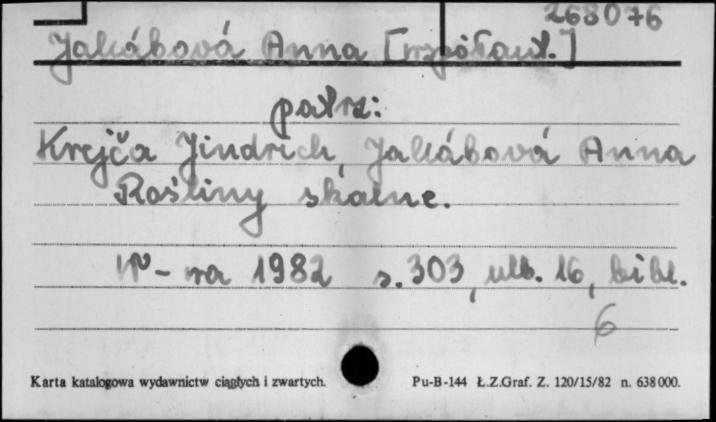 268076
Jakábová Anna [współaut.]
patrz:
Krejča Jindrich, Jakábová Anna
Rośliny skalne.
W-wa 1982 s. 303, ulb. 16, bibl.
6
Karta katalogowa wydawnictw ciągłych i zwartych. Pu-B-144 Ł.Z.Graf. Z. 120/15/82 n. 638 000.